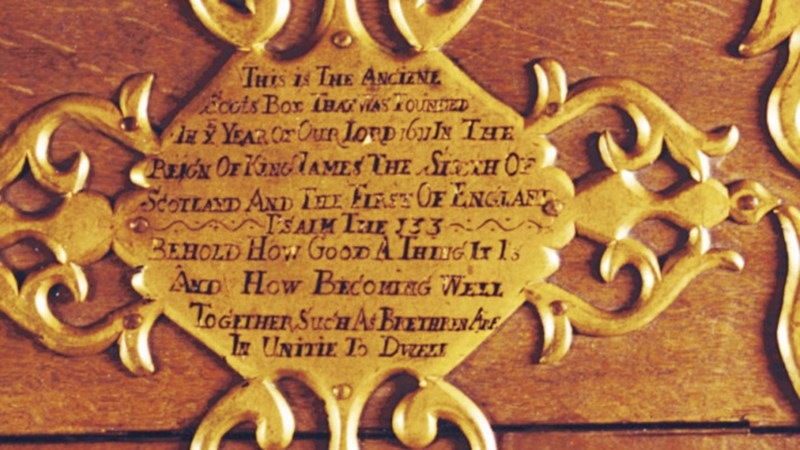 THIS IS THE ANCIENE
SCOTS BOX THAT WAS FOUNDED
IN Yͤ YEAR OF OUR LORD 1611 IN THE
REIGN OF KING JAMES THE SIXTH OF
SCOTLAND AND THE FIRST OF ENGLAND
PSALM THE 133
BEHOLD HOW GOOD A THING IT IS
AND HOW BECOMING WELL
TOGETHER SUCH AS BRETHREN ARE
IN UNITIE TO DWELL